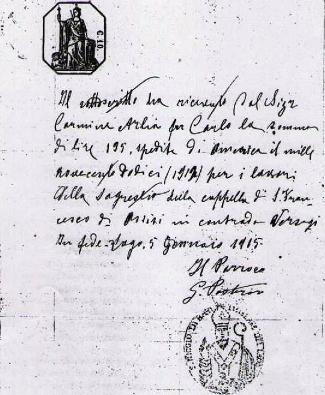 C.10
Il sottoscritto ha ricevuto dal Sigr
Carmine Arlia fu Carlo la somma
di lire 195, spedite di America il mille
novecento dodici (1912) per i lavori
della sagrestia della cappella di S. Fran-
cesco di Assisi in contrada
In fede. Lago, 5 Gennaio 1915.
Il Parroco
G.